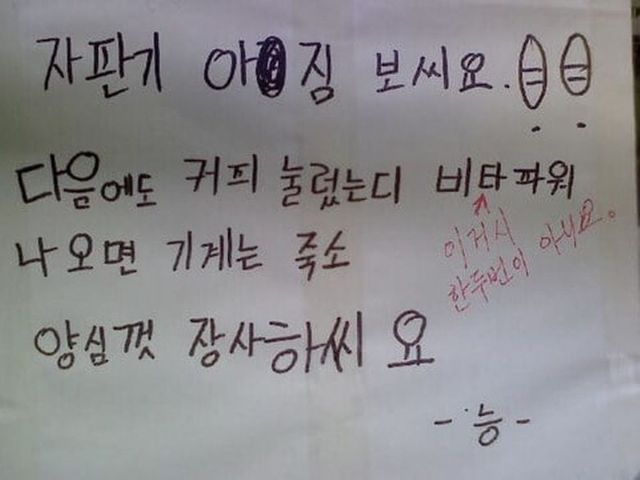 자판기 아짐 보씨요.
다음에도 커피 눌렀는디 비타파워
나오면 기계는 죽소
이거시
한두번이 아니요。
양심껏 장사하씨요
- 능 -